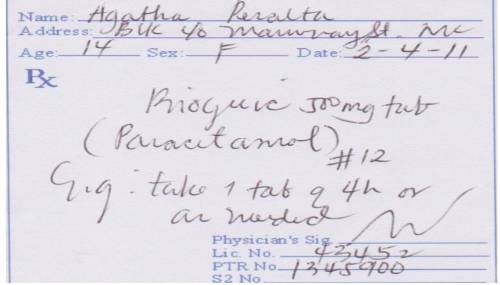 Name: Agatha Peralta
Address: Blk 40 St. MC
Age: 14 Sex: F Date: 2-4-11
Rx
500mg tab
(Paracitamol)
#12
Sig: take 1 tab q 4h or
as needed
Physician's Sig.
Lic. No. 43452
PTR No. 1345900
S2 No.